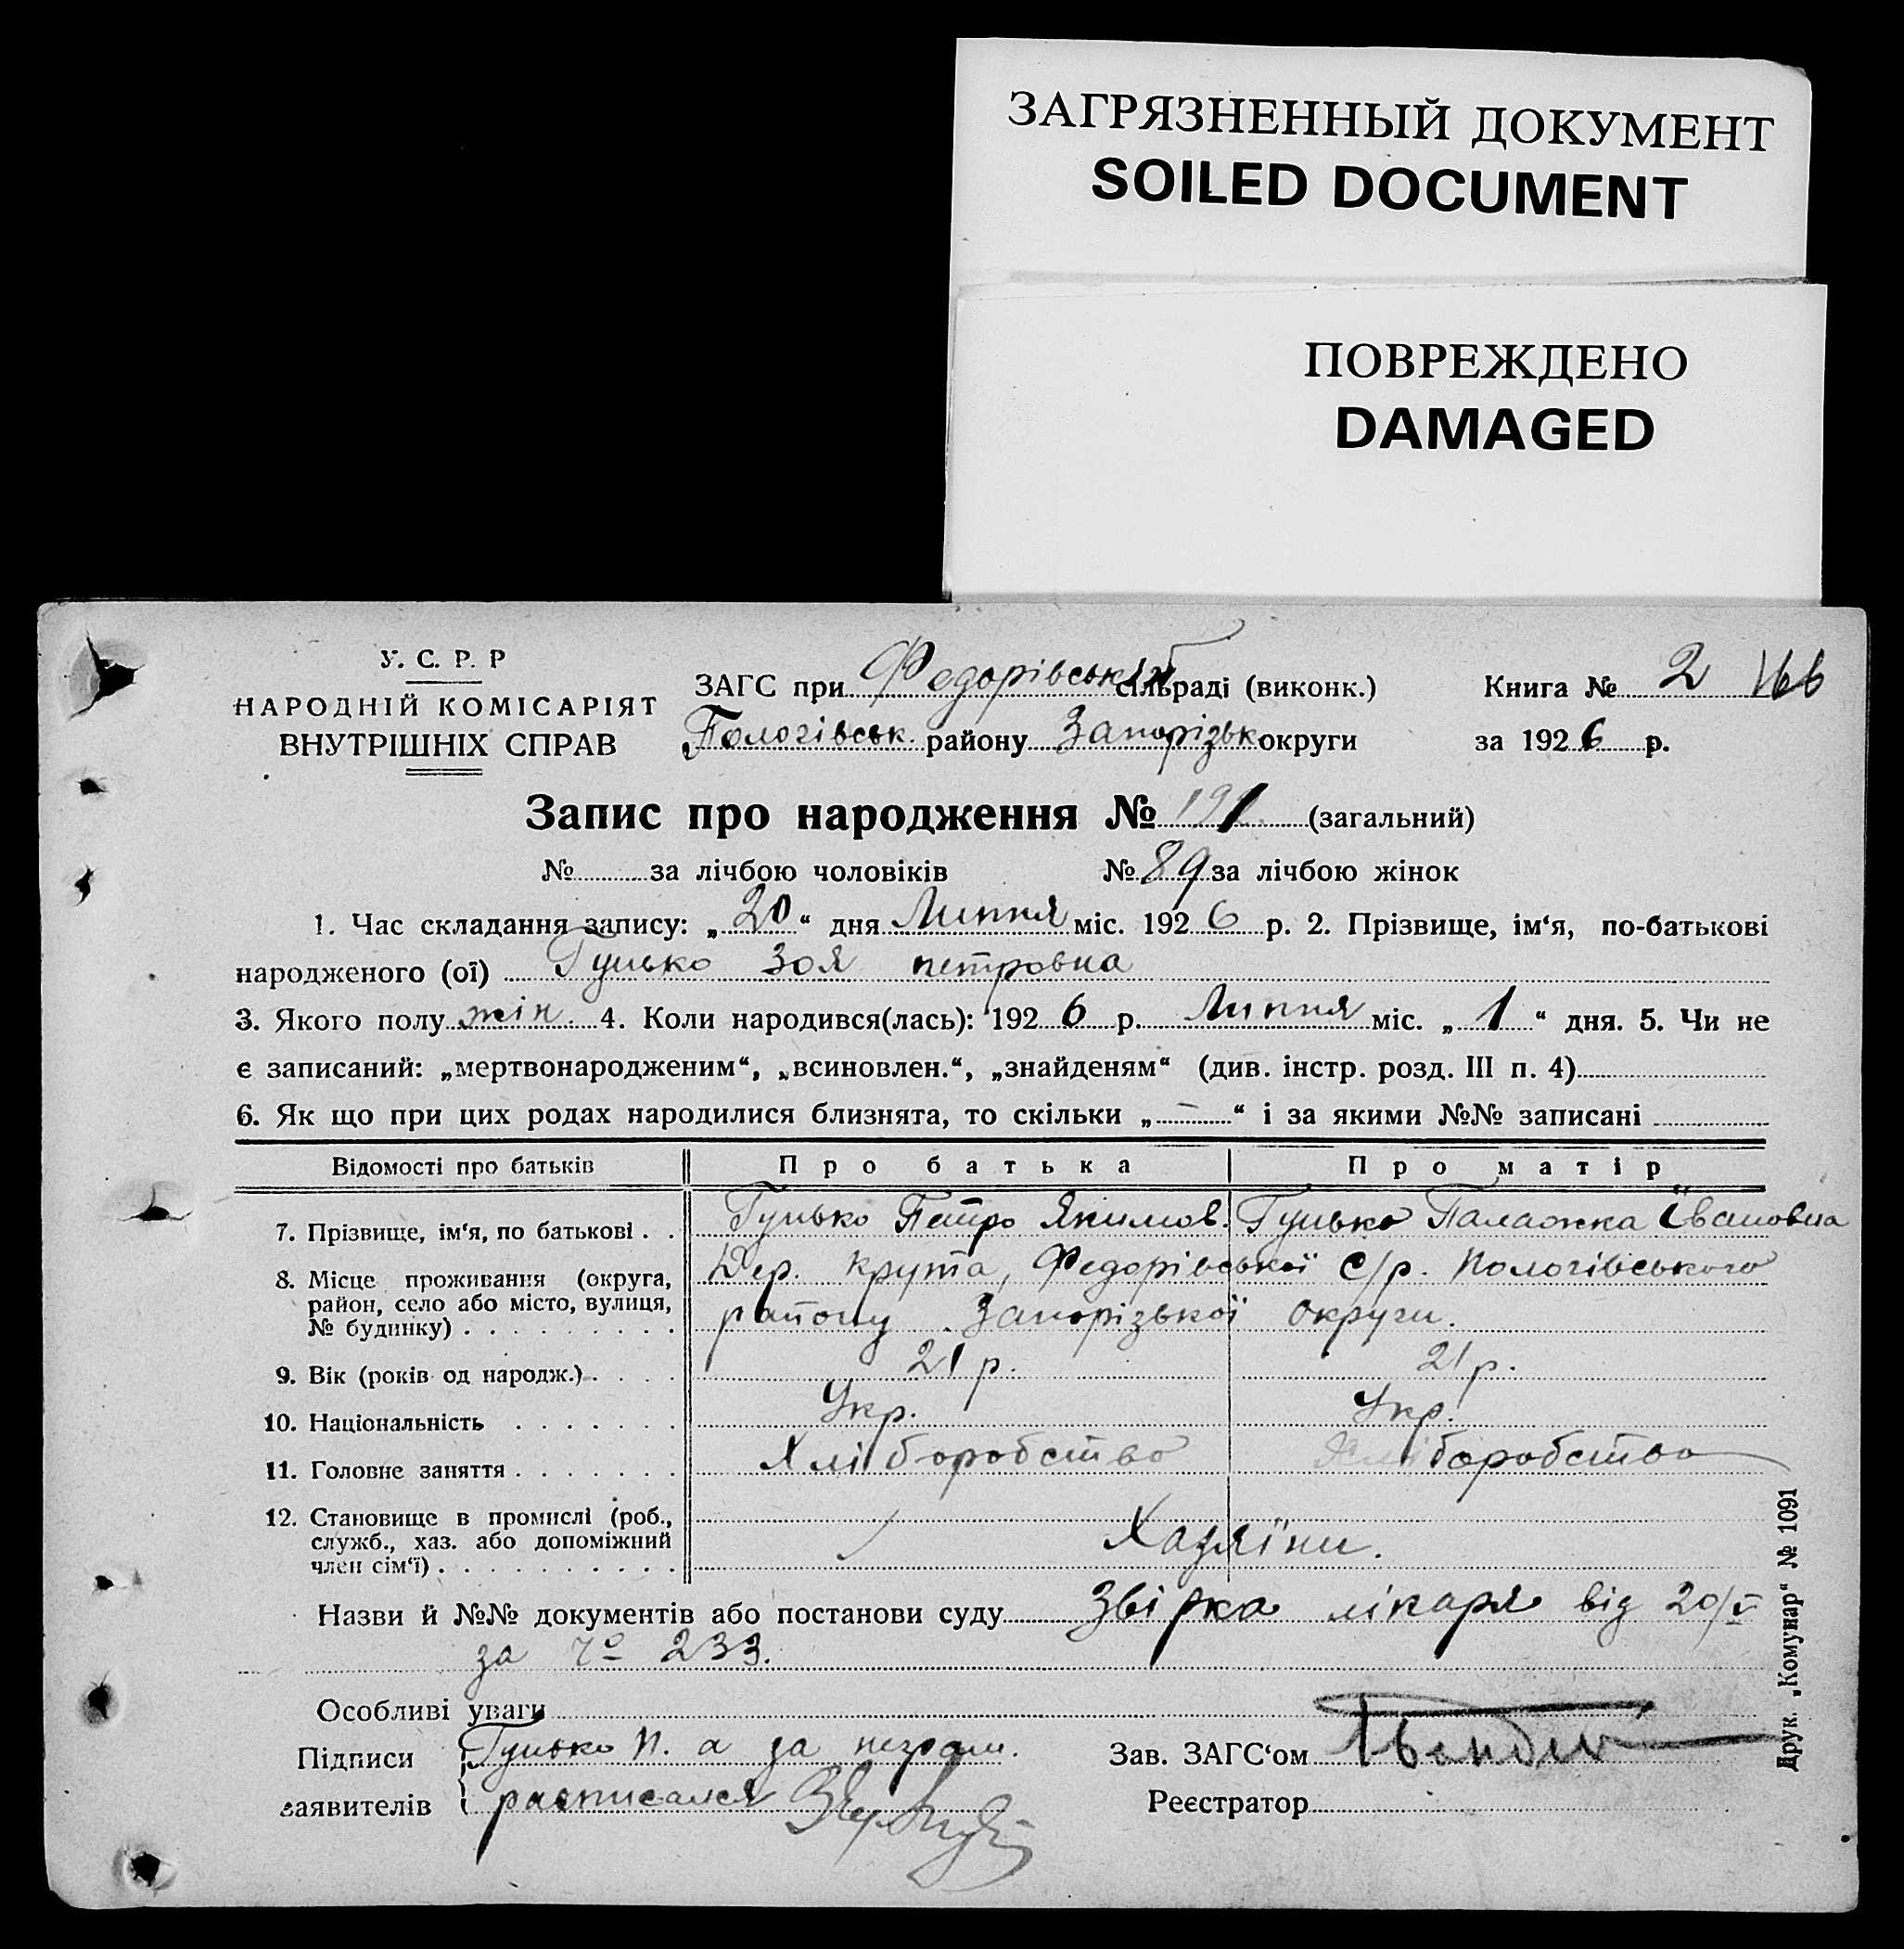 ЗАГРЯЗНЕННЫЙ ДОКУМЕНТ
SOILED DOCUMENT
ПОВРЕЖДЕНО
DAMAGED
У. С. Р. Р
НАРОДНІЙ КОМІСАРІЯТ
ВНУТРІШНІХ СПРАВ
ЗАГС при Федорівській сільраді (виконк.)
Пологівськ. району Запорізьк округи
Книга № 2 166
за 1926 р.
Запис про народження № 191 (загальний)
№ за лічбою чоловіків № 89 за лічбою жінок
1. Час складання запису: „20“ дня Липня міс. 1926 р. 2. Прізвище, ім‘я, по-батькові
народженого (ої) Гунько Зоя петровна
3. Якого полу жін. 4. Коли народився(лась): 1926 р. Липня міс. „1“ дня. 5. Чи не
є записаний: „мертвонародженим“, „всиновлен.“, „знайденям“ (див. інстр. розд. III п. 4)
6. Як що при цих родах народилися близнята, то скільки „—“ і за якими №№ записані
Відомості про батьків Про батька Про матір
7. Прізвище, ім‘я, по батькові . . Гунько Петро Якимов. Гунько Палажка Івановна
8. Місце проживання (округа, Дер. Крута, Федорівської с/р. Пологівського
район, село або місто, вулиця, району Запорізької округи.
№ будинку)
9. Вік (років од народж.) 21 р. 21 р.
10. Національність Укр. Укр.
11. Головне заняття Хліборобство Хліборобство
12. Становище в промислі (роб.,
служб., хаз. або допоміжний Хазяїни.
член сім‘ї)
Назви й №№ документів або постанови суду Звірка лікаря від 20/V
за № 233.
Особливі уваги
Підписи Гунько П. а за неграм. Зав. ЗАГС‘ом
заявителів расписался Реєстратор
Друк. „Комунар“ № 1091